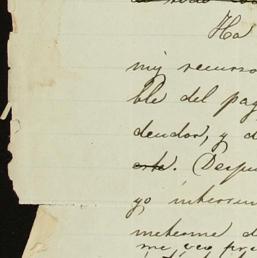 Ha
my recurso
ble del pag
deudor, y d
este. Despu
yo interrum
meterme d
me veo pre